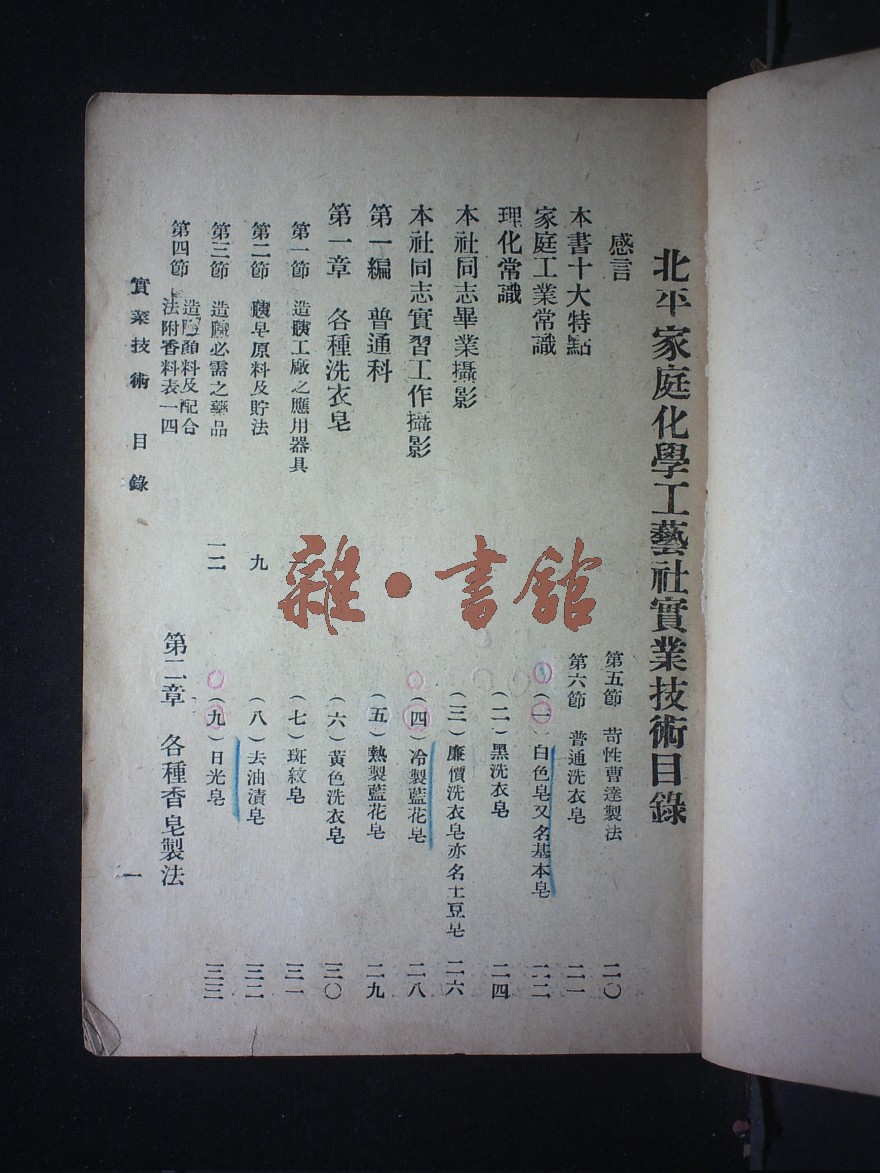 北平家庭化學工藝社實業技術目錄
感言
本書十大特點
家庭工業常識
理化常識
本社同志畢業攝影
本社同志實習工作攝影
第一編 普通科
第一章 各種洗衣皂
第一節 造胰工廠之應用器具
第二節 胰皂原料及貯法 九
第三節 造胰必需之藥品 一二
第四節 造胰顏料及配合
法附香料表一四
第五節 苛性曹達製法 二〇
第六節 普通洗衣皂 二一
(一) 白色皂又名基本皂 二二
(二) 黑洗衣皂 二四
(三) 廉價洗衣皂亦名土豆皂 二六
(四) 冷製藍花皂 二八
(五) 熱製藍花皂 二九
(六) 黃色洗衣皂 三〇
(七) 斑紋皂 三一
(八) 去油漬皂 三二
(九) 日光皂 三三
第二章 各種香皂製法
實業技術 目錄 一
雜·書館